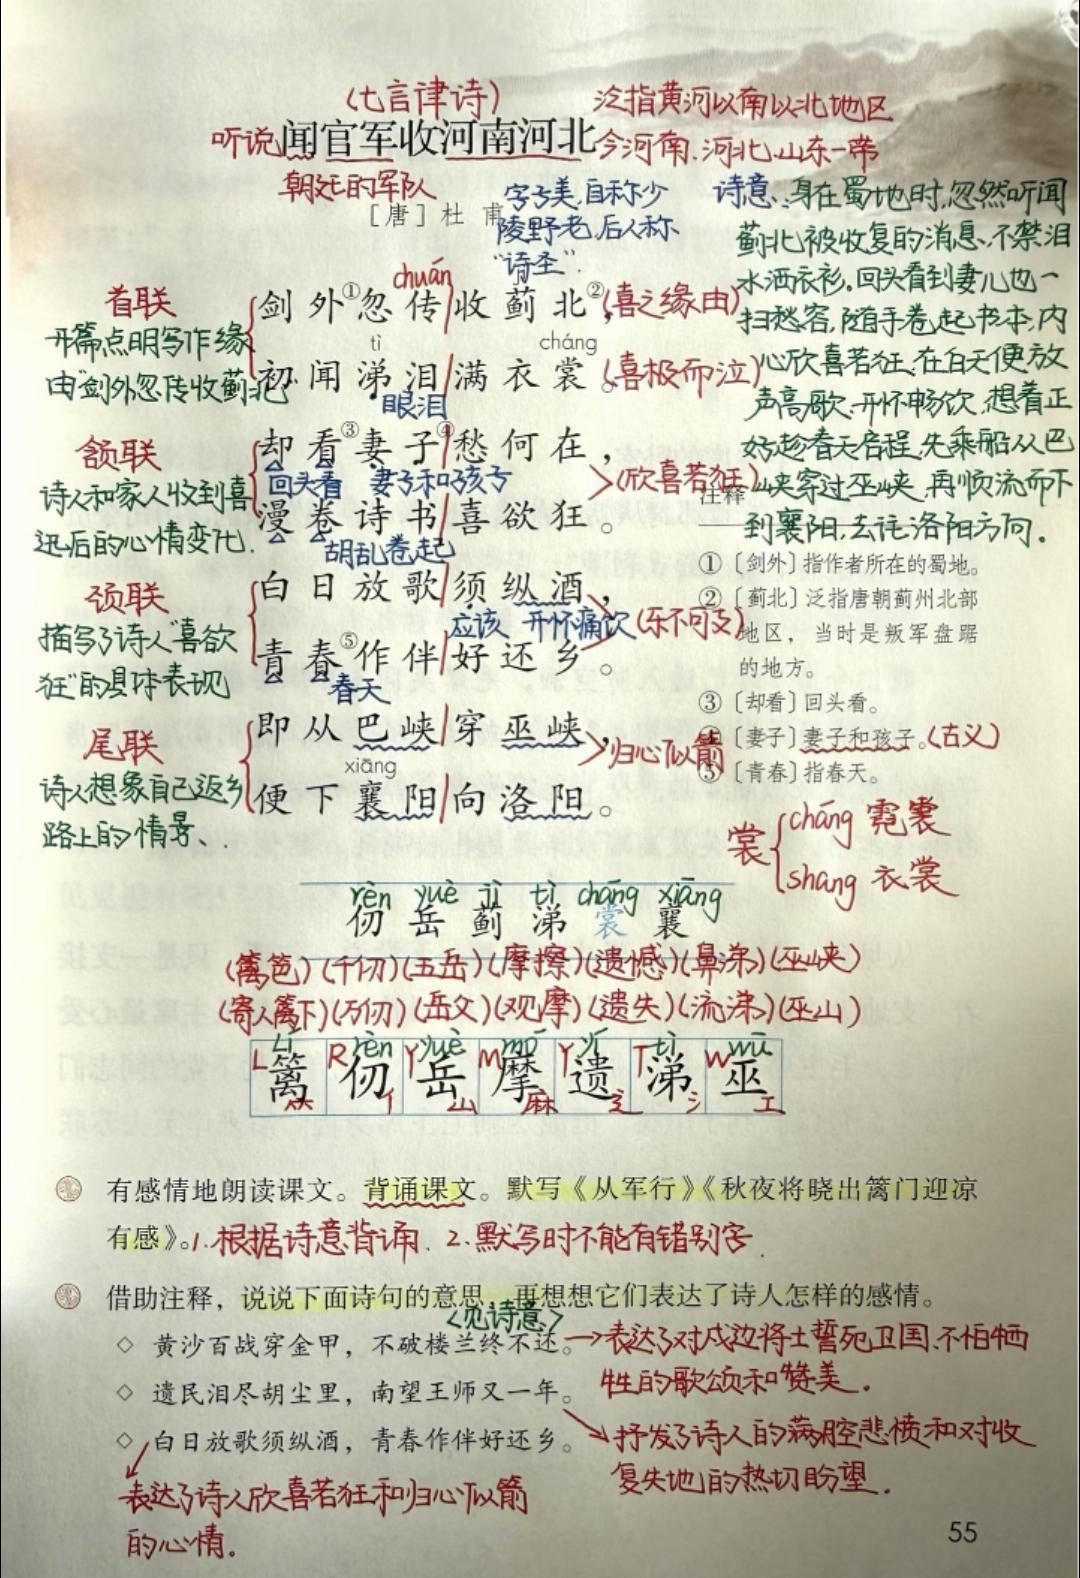 (七言律诗)
泛指黄河以南以北地区
听说闻官军收河南河北今河南、河北、山东一带
朝廷的军队
[唐]杜甫
字子美,自称少
陵野老,后人称
"诗圣".
诗意:身在蜀地时,忽然听闻
蓟北被收复的消息,不禁泪
水洒衣衫。回头看到妻儿也一
扫愁容,随手卷起书本,内
心欣喜若狂。在白天便放
声高歌,开怀畅饮,想着正
好趁春天启程,先乘船从巴
峡穿过巫峡,再顺流而下
到襄阳,去往洛阳方向.
首联
开篇点明写作缘
由"剑外忽传收蓟北"
chuán
剑外①忽传收蓟北②,(喜之缘由)
tì cháng
初闻涕泪满衣裳。(喜极而泣)
眼泪
颔联
诗人和家人收到喜
迅后的心情变化.
却看③妻子④愁何在,
回头看 妻子和孩子
(欣喜若狂)
漫卷诗书喜欲狂。
胡乱卷起
颈联
描写了诗人"喜欲
狂"的具体表现
白日放歌须纵酒,
应该 开怀痛饮(乐不可支)
青春⑤作伴好还乡。
春天
尾联
诗人想象自己返乡
路上的情景、.
即从巴峡穿巫峡,归心似箭
xiāng
便下襄阳向洛阳。
注释
①〔剑外〕指作者所在的蜀地。
②〔蓟北〕泛指唐朝蓟州北部
地区,当时是叛军盘踞
的地方。
③〔却看〕回头看。
④〔妻子〕妻子和孩子。(古义)
⑤〔青春〕指春天。
裳
cháng 霓裳
shang 衣裳
rèn yuè jì tì cháng xiāng
仞 岳 蓟 涕 裳 襄
(篱笆)(千仞)(五岳)(摩擦)(遗憾)(鼻涕)(巫峡)
(寄人篱下)(万仞)(岳父)(观摩)(遗失)(流涕)(巫山)
lí rèn yuè mó yí tì wū
L R Y M Y T W
篱 仞 岳 摩 遗 涕 巫
亻 山 麻 辶 氵 工
有感情地朗读课文。背诵课文。默写《从军行》《秋夜将晓出篱门迎凉
有感》。1.根据诗意背诵. 2.默写时不能有错别字.
借助注释,说说下面诗句的意思,再想想它们表达了诗人怎样的感情。
<见诗意>
◇ 黄沙百战穿金甲,不破楼兰终不还。→表达了对戍边将士誓死卫国、不怕牺
牲的歌颂和赞美.
◇ 遗民泪尽胡尘里,南望王师又一年。
抒发了诗人的满腔悲愤和对收
复失地的热切盼望.
◇ 白日放歌须纵酒,青春作伴好还乡。
表达了诗人欣喜若狂和归心似箭
的心情.
55